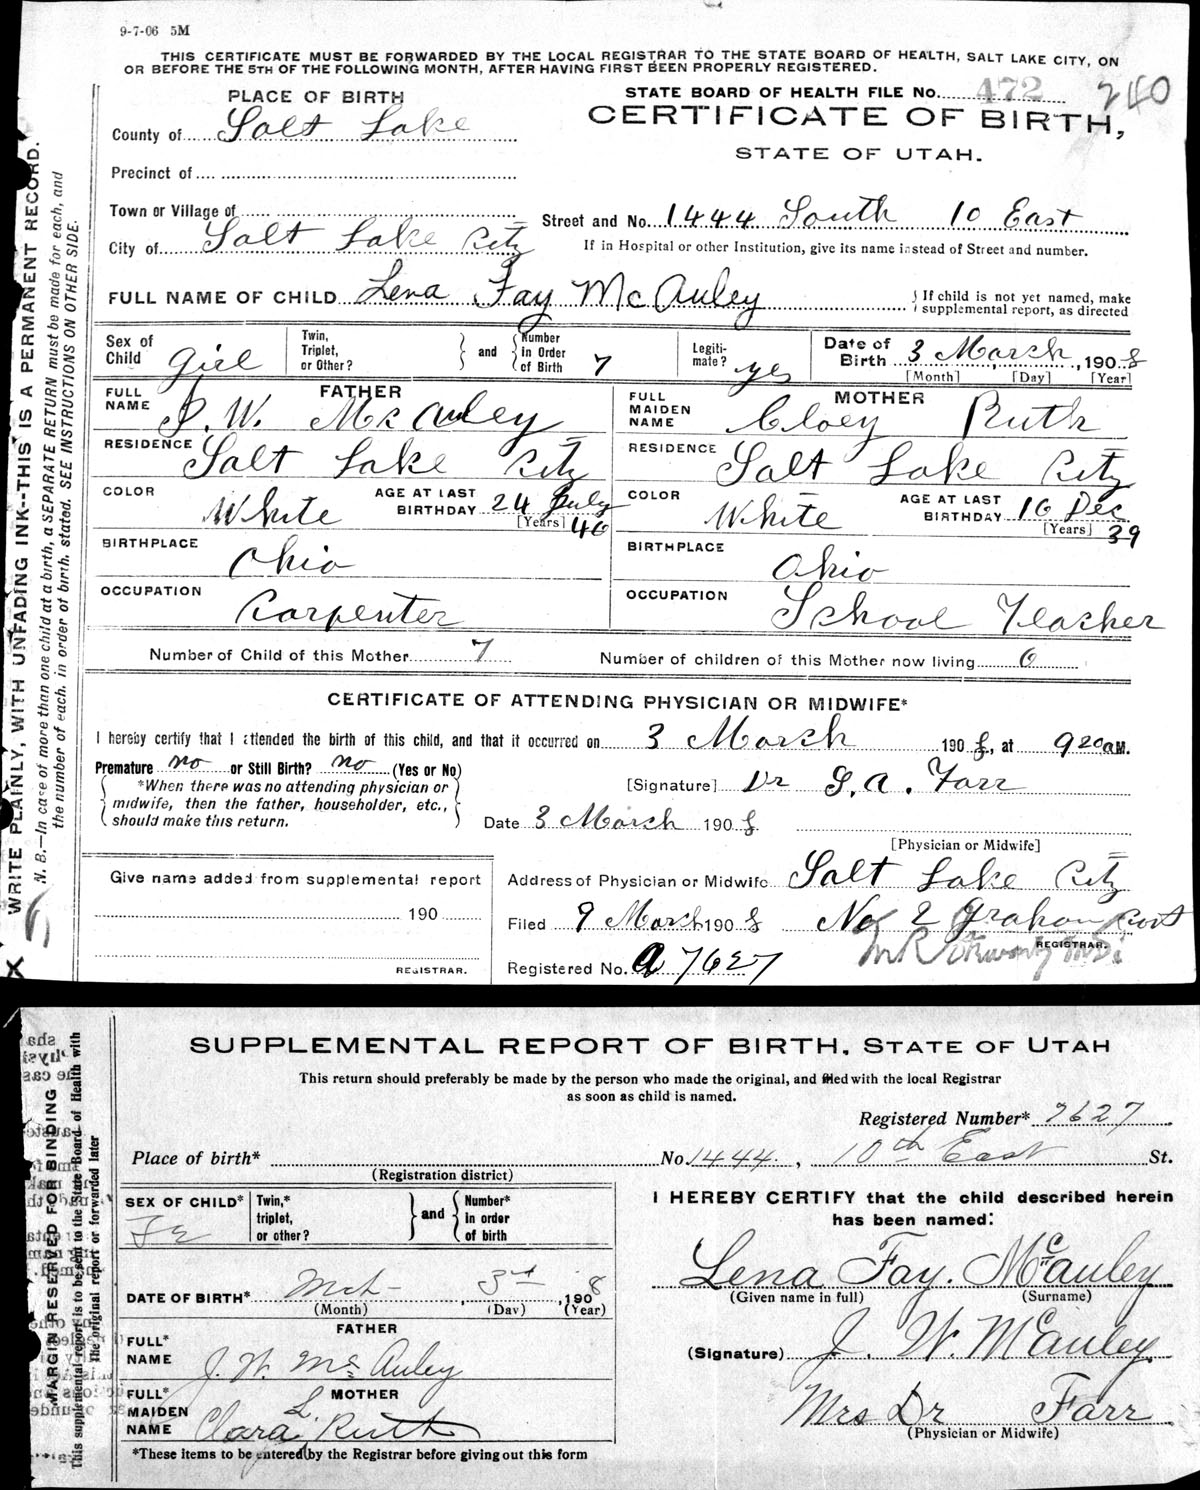 9-7-06 5M
THIS CERTIFICATE MUST BE FORWARDED BY THE LOCAL REGISTRAR TO THE STATE BOARD OF HEALTH, SALT LAKE CITY, ON
OR BEFORE THE 5TH OF THE FOLLOWING MONTH, AFTER HAVING FIRST BEEN PROPERLY REGISTERED.
PLACE OF BIRTH
STATE BOARD OF HEALTH FILE No. 472 240
County of Salt Lake
CERTIFICATE OF BIRTH,
STATE OF UTAH.
Precinct of
Town or Village of
Street and No. 1444 South 10 East
City of Salt Lake City
If in Hospital or other Institution, give its name instead of Street and number.
FULL NAME OF CHILD Lena Fay McAuley
If child is not yet named, make supplemental report, as directed
Sex of Child girl
Twin, Triplet, or Other? and Number in Order of Birth 7
Legitimate? yes
Date of Birth 3 March, 1908
[Month] [Day] [Year]
FATHER
FULL NAME J. W. McAuley
MOTHER
FULL MAIDEN NAME Cloey Ruth
RESIDENCE Salt Lake City
RESIDENCE Salt Lake City
COLOR White AGE AT LAST BIRTHDAY 24 July 46 [Years]
COLOR White AGE AT LAST BIRTHDAY 16 Dec 39 [Years]
BIRTHPLACE Ohio
BIRTHPLACE Ohio
OCCUPATION Carpenter
OCCUPATION School Teacher
Number of Child of this Mother 7 Number of children of this Mother now living 6
CERTIFICATE OF ATTENDING PHYSICIAN OR MIDWIFE*
I hereby certify that I attended the birth of this child, and that it occurred on 3 March 1908, at 9 20 a M.
Premature no or Still Birth? no (Yes or No)
[Signature] Dr G. A. Farr
*When there was no attending physician or
midwife, then the father, householder, etc.,
should make this return.
Date 3 March 1908
[Physician or Midwife]
Give name added from supplemental report
190
REGISTRAR.
Address of Physician or Midwife Salt Lake City
Filed 9 March 1908 No 2 Graham Cort
REGISTRAR.
Registered No. a 7627
WRITE PLAINLY, WITH UNFADING INK--THIS IS A PERMANENT RECORD.
N. B.—In case of more than one child at a birth, a SEPARATE RETURN must be made for each, and
the number of each, in order of birth, stated. SEE INSTRUCTIONS ON OTHER SIDE.
X
SUPPLEMENTAL REPORT OF BIRTH, STATE OF UTAH
This return should preferably be made by the person who made the original, and filed with the local Registrar
as soon as child is named.
Registered Number* 7627
Place of birth* No. 1444, 10th East St.
(Registration district)
SEX OF CHILD* Fe
Twin,* triplet, or other? and Number* in order of birth
I HEREBY CERTIFY that the child described herein
has been named:
Lena Fay. McAuley
(Given name in full) (Surname)
DATE OF BIRTH* Mch 3rd, 1908
(Month) (Day) (Year)
FATHER
FULL* NAME J. W. McAuley
(Signature) J. W. McAuley
MOTHER
FULL* MAIDEN NAME Clara L Ruth
Mrs Dr Farr
(Physician or Midwife)
*These items to be entered by the Registrar before giving out this form
MARGIN RESERVED FOR BINDING
This supplemental report is to be sent to the State Board of Health with
The original report or forwarded later